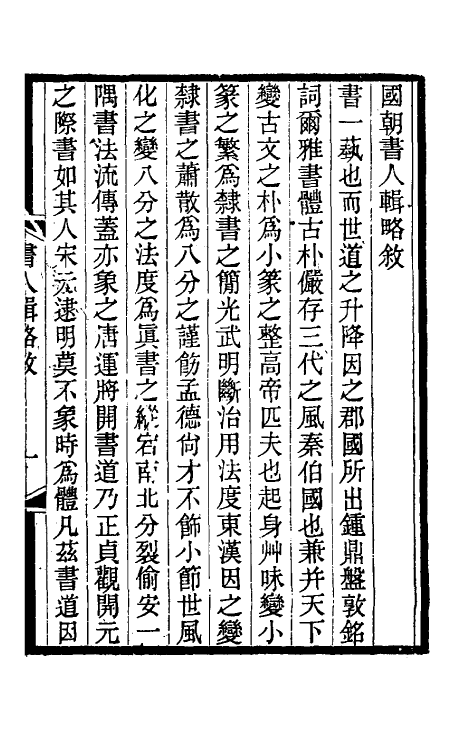 國朝書人輯略敘
書一蓺也而世道之升降因之郡國所出鍾鼎盤敦銘
詞爾雅書體古朴儼存三代之風秦伯國也兼并天下
變古文之朴爲小篆之整高帝匹夫也起身艸昧變小
篆之繁爲隸書之簡光武明斷治用法度東漢因之變
隸書之蕭散爲八分之謹飭孟德尙才不飾小節世風
化之變八分之法度爲眞書之縱宕南北分裂偷安一
隅書法流傳蓋亦象之唐運將開書道乃正貞觀開元
之際書如其人宋元逮明莫不象時爲體凡茲書道因
書人輯略敘
一